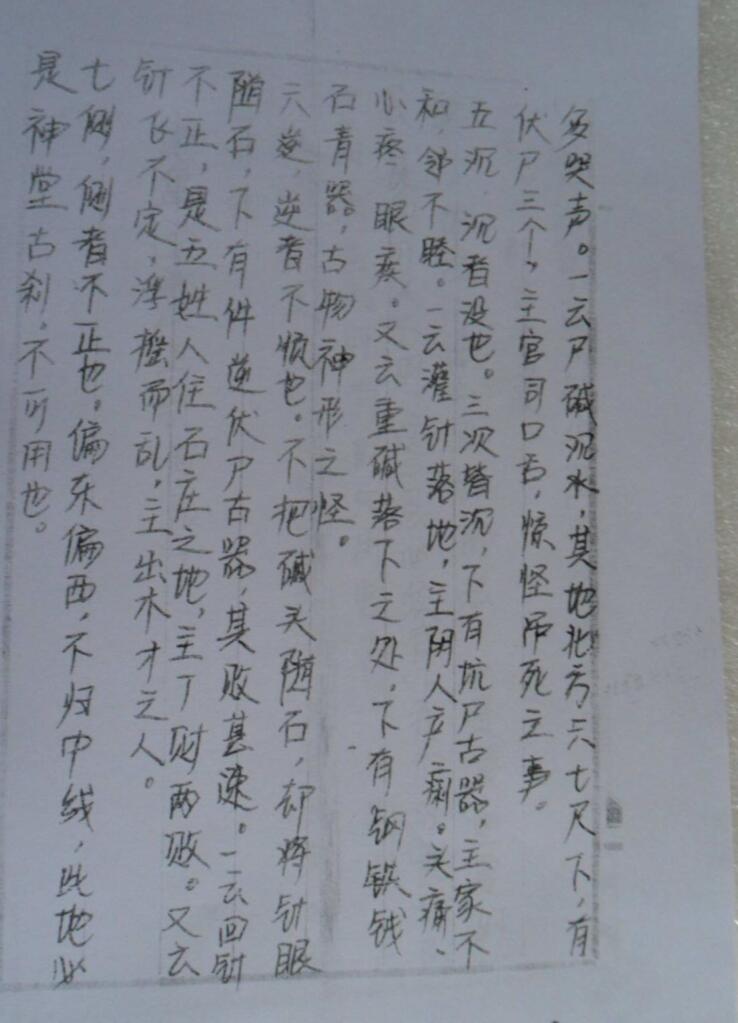 哭声。一云尸碱沉水，其地北方六七尺下，有
伏尸三个，主官司口舌，惊怪吊死之事。
五沉，沉者没也。三次皆沉，下有坑尸古器，主家不
和，邻不睦。一云灌针落地，主阴人产痢。头痛、
心疼，眼疾。又云重碱落下之处，下有铜铁钱
石青器，古物神形之怪。
六逆，逆者不顺也。不把碱头随石，却将针眼
随石，下有件逆伏尸古器，其败甚速。一云回针
不正，是五姓人住石庄之地，主丁财两败。又云
针飞不定，浮而乱，主出木才之人。
七侧，侧者不正也。偏东偏西，不归中线，此地必
是神堂古刹。不可用也。